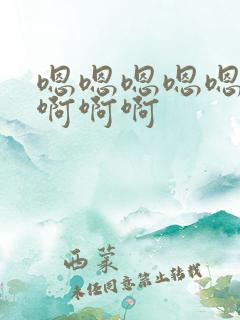 嗯嗯嗯嗯嗯
啊啊啊
西蒙
未经同意禁止转载